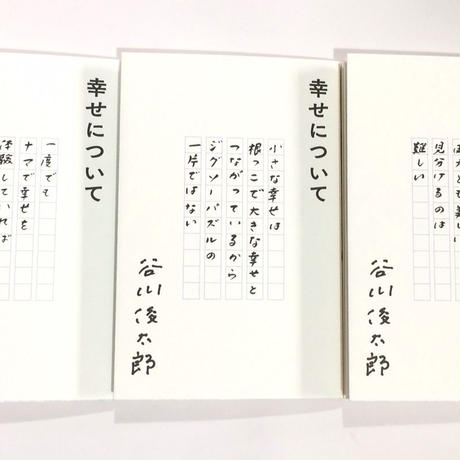 見分けるのは
難しい
谷川俊太郎
幸せについて
小さな幸せは
根っこで大きな幸せと
つながっているから
ジグソーパズルの
一片ではない
谷川俊太郎
幸せについて
一度でも
ナマで幸せを
体験していれば